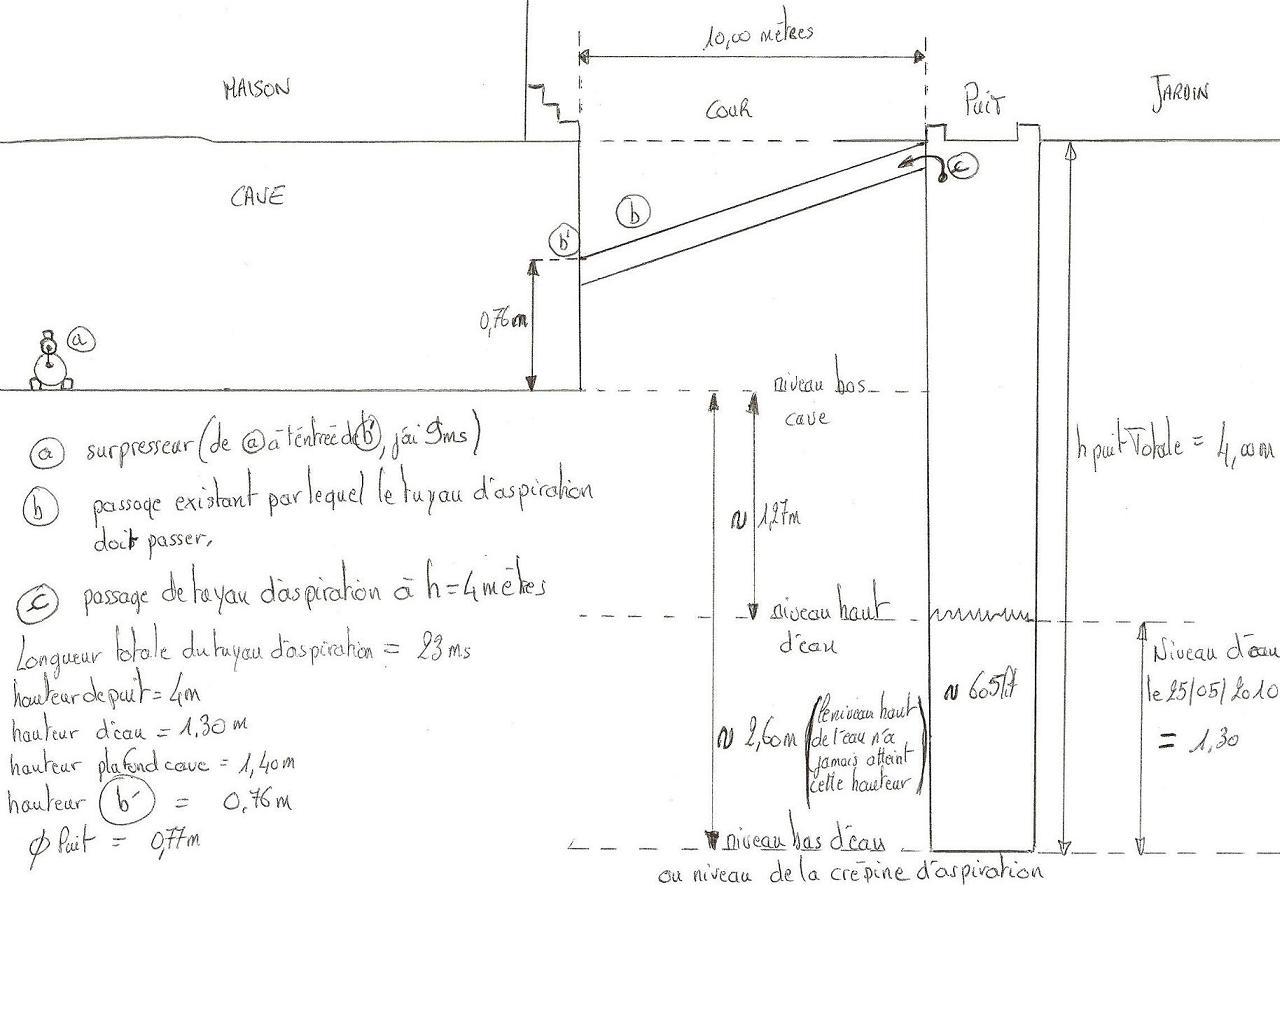 10,00 mètres
MAISON
COUR
Puit
JARDIN
CAVE
c
b
b'
0,76m
a
niveau bas
cave
h puit Totale = 4,00m
a surpresseur (de a à l'entrée de b', j'ai 9ms)
b passage existant par lequel le tuyau d'aspiration
doit passer.
~ 1,27m
c passage de tuyau d'aspiration à h=4 mètres
niveau haut
d'éau
Longueur totale du tuyau d'aspiration = 23 ms
Niveau d'éau
le 25/05/2010
= 1,30
hauteur de puit = 4m
~ 605 lt
hauteur d'éau = 1,30 m
~ 2,60m (le niveau haut
de l'eau n'a
jamais atteint
cette hauteur)
hauteur plafond cave = 1,40m
hauteur b' = 0,76m
ϕ Puit = 0,77m
niveau bas d'éau
ou niveau de la crépine d'aspiration